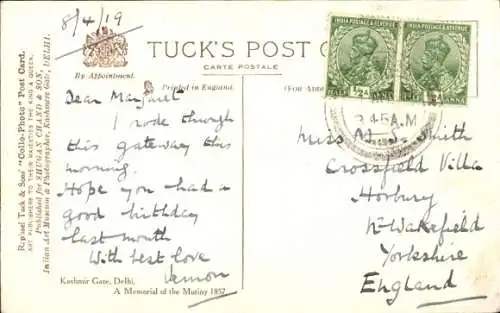 8/4/19
TUCK'S POST
CARTE POSTALE
By Appointment.
Printed in England.
(FOR
Raphael Tuck & Sons' "Collo-Photo" Post Card.
ART PUBLISHERS TO THEIR MAJESTIES THE KING & QUEEN.
Published for KHUGAN CHAND & SON,
Indian Art Museum & Photographer, Kashmere Gate, DELHI.
Dear Margaret
I rode through
this gateway this
morning.
Hope you had a
good birthday
last month
With best love
Vernon
Kashmir Gate, Delhi,
A Memorial of the Mutiny 1857.
INDIA POSTAGE & REVENUE
INDIA POSTAGE & REVENUE
HALF ½A ANNA
½A ANNA
45 A.M
Miss M Smith
Crossfield Villa
Horbury
Nr Wakefield
Yorkshire
England